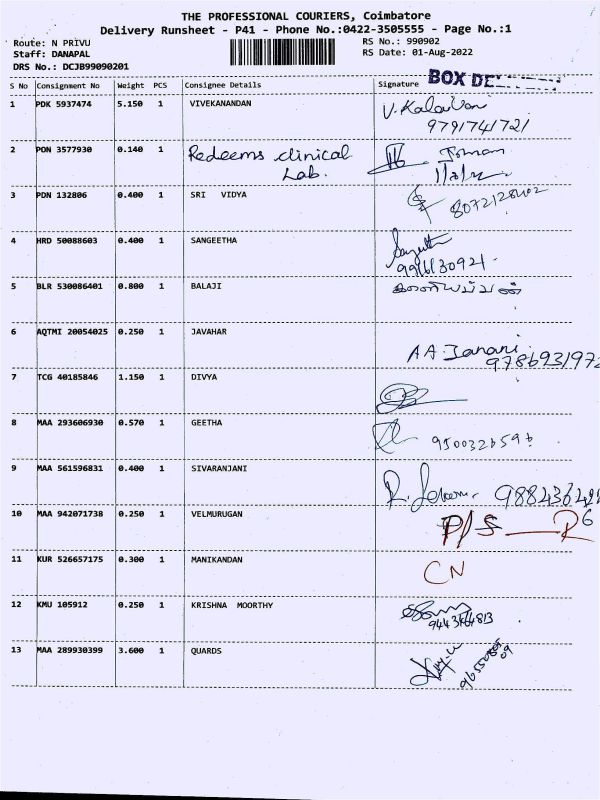 THE PROFESSIONAL COURIERS, Coimbatore
Delivery Runsheet - P41 - Phone No.:0422-3505555 - Page No.:1
Route: N PRIVU RS No.: 990902
Staff: DANAPAL RS Date: 01-Aug-2022
DRS No.: DCJB99090201
BOX DE
S No Consignment No Weight PCS Consignee Details Signature
1 PDK 5937474 5.150 1 VIVEKANANDAN V. Kalaivan
9791741721
2 PON 3577930 0.140 1 Redeems clinical
Lab.
3 PDN 132806 0.400 1 SRI VIDYA
4 HRD 50088603 0.400 1 SANGEETHA
5 BLR 530086401 0.800 1 BALAJI
6 AQTMI 20054025 0.250 1 JAVAHAR A A. Janani
978693197
7 TCG 40185846 1.150 1 DIVYA
8 MAA 293606930 0.570 1 GEETHA
9 MAA 561596831 0.400 1 SIVARANJANI
10 MAA 942071738 0.250 1 VELMURUGAN P/S
11 KUR 526657175 0.300 1 MANIKANDAN CN
12 KMU 105912 0.250 1 KRISHNA MOORTHY
13 MAA 289930399 3.600 1 QUARDS